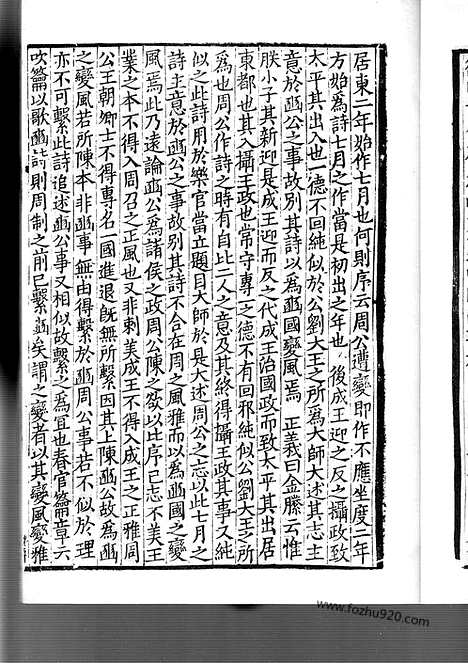 居東二年始作七月也何則序云周公遭變即作不應坐度二年
方始爲詩七月之作當是初出之年也 後成王迎之反之攝政致
太平其出入也一德不回純似於公劉大王之所爲大師大述其志主
意於豳公之事故別其詩以爲豳國變風焉 正義曰金縢云惟
朕小子其新迎是成王迎而反之代成王治國政而致太平其出居
東都也其入攝王政也常守專一之德不有回邪純似公劉大王之所
爲也周公作詩之時有自比二人之意及其終得攝王政其事又純
似之此詩用於樂官當立題目大師於是大述周公之志以此七月之
詩主意於豳公之事故別其詩不合在周之風雅而以爲豳國之變
風焉此乃遠論豳公爲諸侯之政周公陳之欲以比序己志不美王
業之本不得入周召之正風也又非刺美成王不得入成王之正雅周
公王朝卿士不得專名一國進退旣無所繫因其上陳豳公故爲豳
之變風若所陳本非豳事無由得繫於豳周公事若不似於理
亦不可繫此詩追述豳公事又相似故繫之爲宜也春官籥章云
吹籥以歌豳詩則周制之前已繫豳矣謂之變者以其變風變雅
www.fozhu920.com